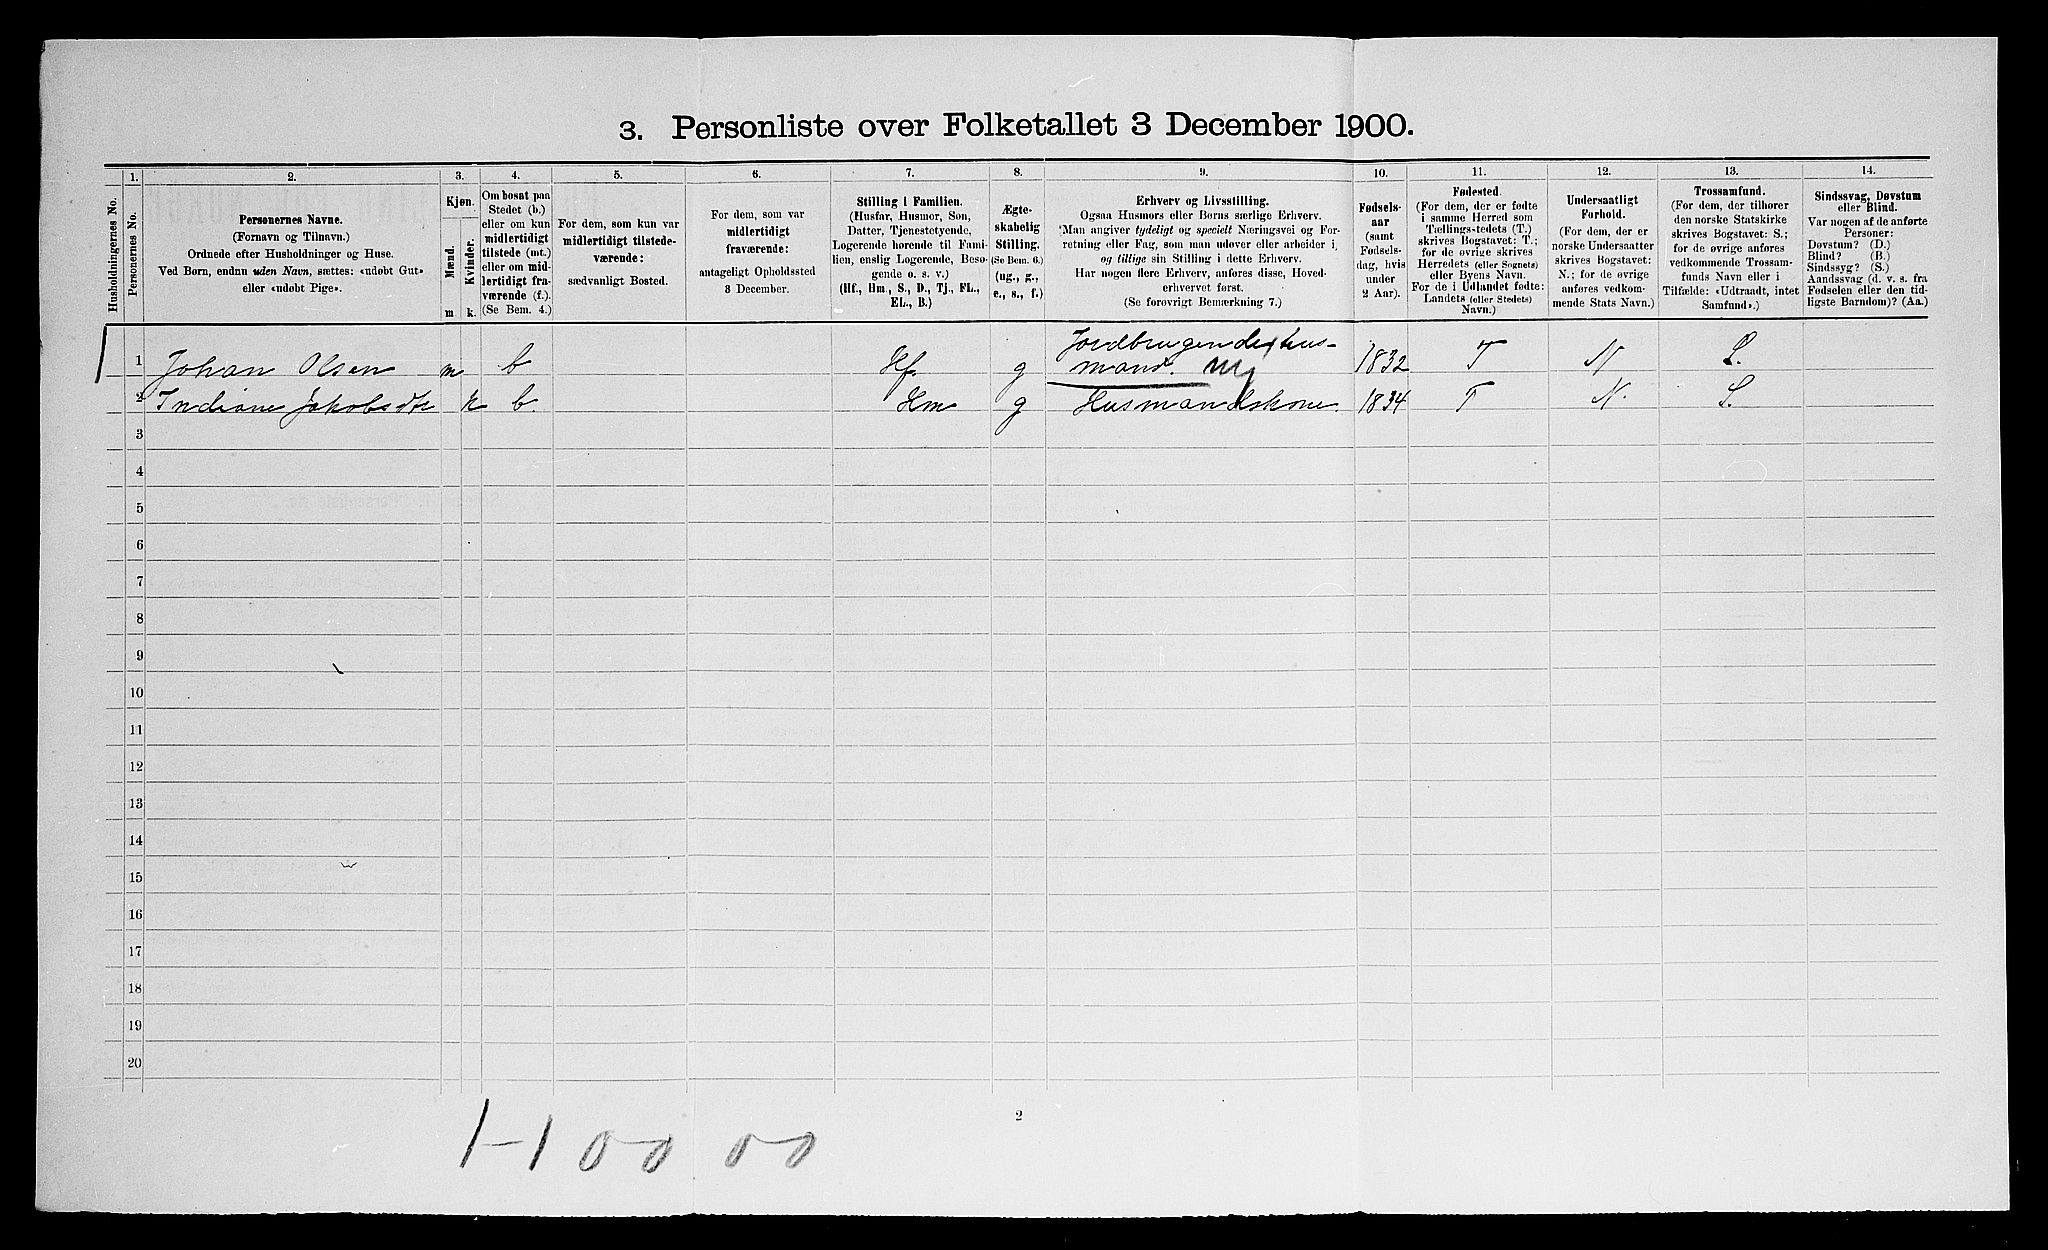 3. Personliste over Folketallet 3 December 1900.
1. 2. 3. 4. 5. 6. 7. 8. 9. 10. 11. 12. 13. 14.
Husholdningernes No.
Personernes No.
Personernes Navne.
(Fornavn og Tilnavn.)
Ordnede efter Husholdninger og Huse.
Ved Børn, endnu uden Navn, sættes: «udøbt Gut»
eller «udøbt Pige».
Kjøn.
Mænd.
Kvinder.
m k.
Om bosat paa
Stedet (b.)
eller om kun
midlertidigt
tilstede (mt.)
eller om mid-
lertidigt fra-
værende (f.).
(Se Bem. 4.)
For dem, som kun var
midlertidigt tilstede-
værende:
sædvanligt Bosted.
For dem, som var
midlertidigt
fraværende:
antageligt Opholdssted
3 December.
Stilling i Familien.
(Husfar, Husmor, Søn,
Datter, Tjenestetyende,
Logerende hørende til Fami-
lien, enslig Logerende, Besø-
gende o. s. v.)
(Hf., Hm., S., D., Tj., FL.,
EL., B.)
Ægte-
skabelig
Stilling.
(Se Bem. 6.)
(ug., g.,
e., s., f.)
Erhverv og Livsstilling.
Ogsaa Husmors eller Børns særlige Erhverv.
Man angiver tydeligt og specielt Næringsvei og For-
retning eller Fag, som man udøver eller arbeider i,
og tillige sin Stilling i dette Erhverv.
Har nogen flere Erhverv, anføres disse, Hoved-
erhvervet først.
(Se forøvrigt Bemærkning 7.)
Fødsels-
aar
(samt
Fødsels-
dag, hvis
under
2 Aar).
Fødested.
(For dem, der er fødte
i samme Herred som
Tællings-tedets (T.)
skrives Bogstavet: T.;
for de øvrige skrives
Herredets (eller Sognets)
eller Byens Navn.
For de i Udlandet fødte:
Landets (eller Stedets)
Navn.)
Undersaatligt
Forhold.
(For dem, der er
norske Undersaatter
skrives Bogstavet:
N.; for de øvrige
anføres vedkom-
mende Stats Navn.)
Trossamfund.
(For dem, der tilhører
den norske Statskirke
skrives Bogstavet: S.;
for de øvrige anføres
vedkommende Trossam-
funds Navn eller i
Tilfælde: «Udtraadt, intet
Samfund».)
Sindssvag, Døvstum
eller Blind.
Var nogen af de anførte
Personer:
Døvstum? (D.)
Blind? (B.)
Sindssyg? (S.)
Aandssvag (d. v. s. fra
Fødselen eller den tid-
ligste Barndom)? (Aa.)
Jordbrugende hus-
1 Johan Olsen m b Hf. g mand. 1832 T N S.
2 Indiane Jakobsdtr k b. Hm g Husmandskone. 1834 T N. S.
3
4
5
6
7
8
9
10
11
12
13
14
15
16
17
18
19
20
2
1-1 00 00